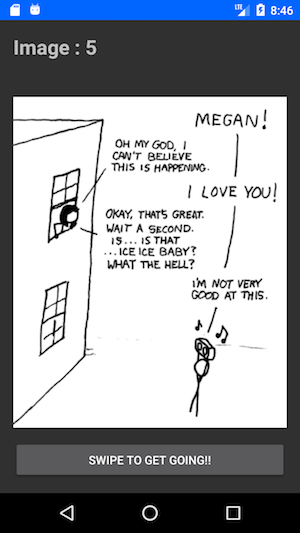 8:46
Image : 5
MEGAN!
OH MY GOD, I
CAN'T BELIEVE
THIS IS HAPPENING.
I LOVE YOU!
OKAY, THAT'S GREAT.
WAIT A SECOND.
IS... IS THAT
...ICE ICE BABY?
WHAT THE HELL?
I'M NOT VERY
GOOD AT THIS.
SWIPE TO GET GOING!!